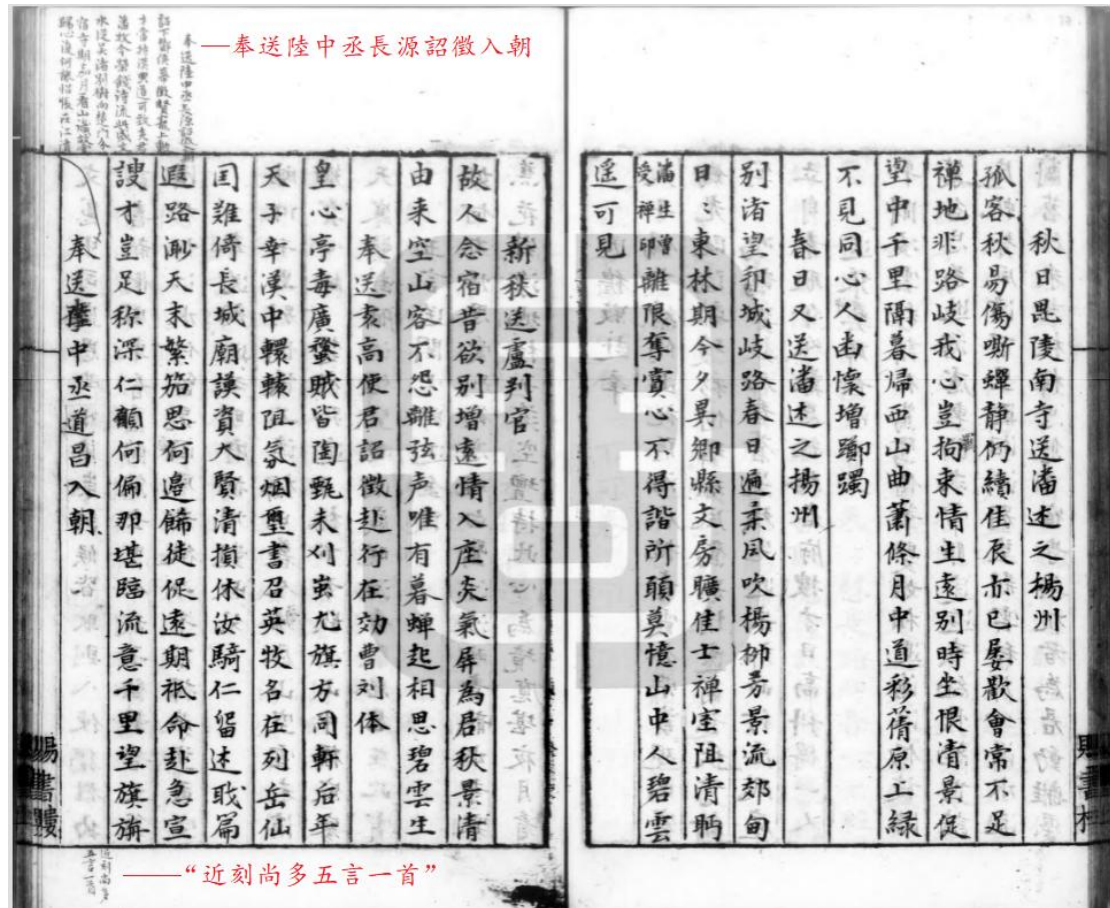 秋日毘陵南寺送潘述之揚州
孤客秋易傷嘶蟬靜仍續佳辰亦已屡歡會常不足
禅地非路岐我心豈拘束情生遠別時坐恨清景促
望中千里隔暮歸西山曲蕭條月中道彩蒨原上緑
不見同心人幽懷增躑躅
春日又送潘述之揚州
別渚望和城岐路春日遍柔風吹揚柳芳景流郊甸
日〻東林期今夕異鄉縣文房曠佳士禅室阻清眄
潘生曽受禅印離恨奪賞心不得諧所願莫憶山中人碧雲
遥可見
賜書樓
新秋送盧判官
故人念宿昔欲別增遠情入座炎氣屏為君秋景清
由来空山客不怨離弦声唯有暮蟬起相思碧雲生
奉送袁高使君詔徵赴行在効曹刘体
皇心亭毒廣蝥賊皆陶甄未刈蚩尤旗方同軒后年
天子幸漢中轘轅阻氛烟璽書召英牧名在列岳仙
国難倚長城廟謨資大賢清損休汝騎仁留述戝篇
遐路渺天末繁笳思何邊飾徒促遠期祗命赴急宣
謏才豈足称深仁顧何偏那堪臨流意千里望旗旃
奉送陸中丞道昌入朝
賜書樓
奉送陸中丞長源詔徵入朝
——奉送陸中丞長源詔徵入朝
近刻尚多
五言一首
——“近刻尚多五言一首”